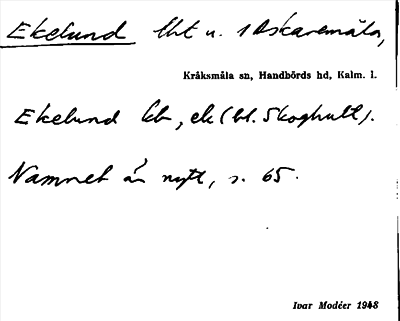 Ekelund lht u. 1 Askaremåla,
Kråksmåla sn, Handbörds hd, Kalm. l.
Ekelund lht, ek (bl. Skoghult).
Namnet är nytt, s. 65.
Ivar Modéer 1948